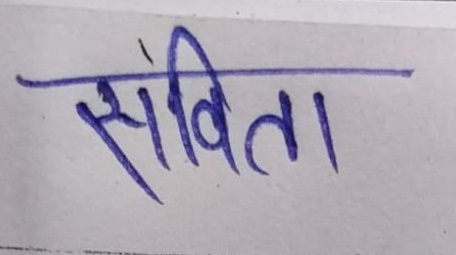 संविता